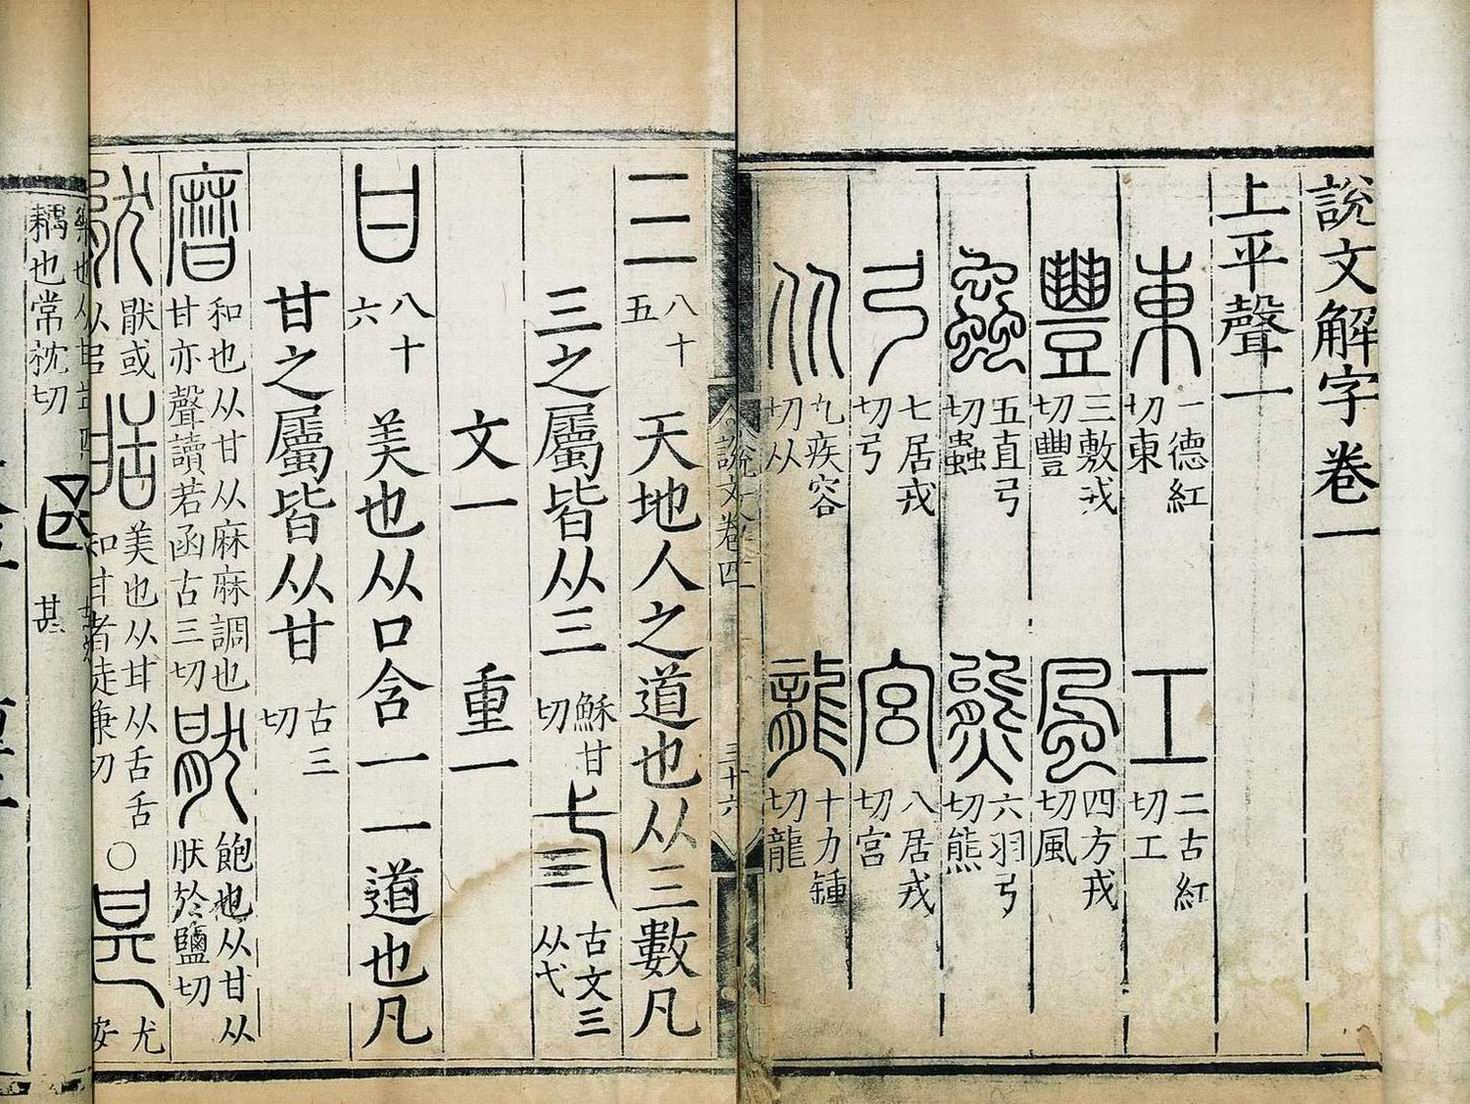 說文解字卷一
上平聲一
東 一德紅切東 工 二古紅切工
豐 三敷戎切豐 風 四方戎切風
蟲 五直弓切蟲 熊 六羽弓切熊
弓 七居戎切弓 宮 八居戎切宮
从 九疾容切从 龍 十力鍾切龍
說文卷四 三十六
三 八十五 天地人之道也从三數凡
三之屬皆从三 穌甘切 弎 古文三从弋
文一 重一
甘 八十六 美也从口含一一道也凡
甘之屬皆从甘 古三切
磿 和也从甘从麻麻調也甘亦聲讀若函古三切 猒 飽也从甘从肰於鹽切
猒或从㠯 甛 美也从甘从舌舌知甘者徒兼切 〇 甚 尤安
耦也常枕切